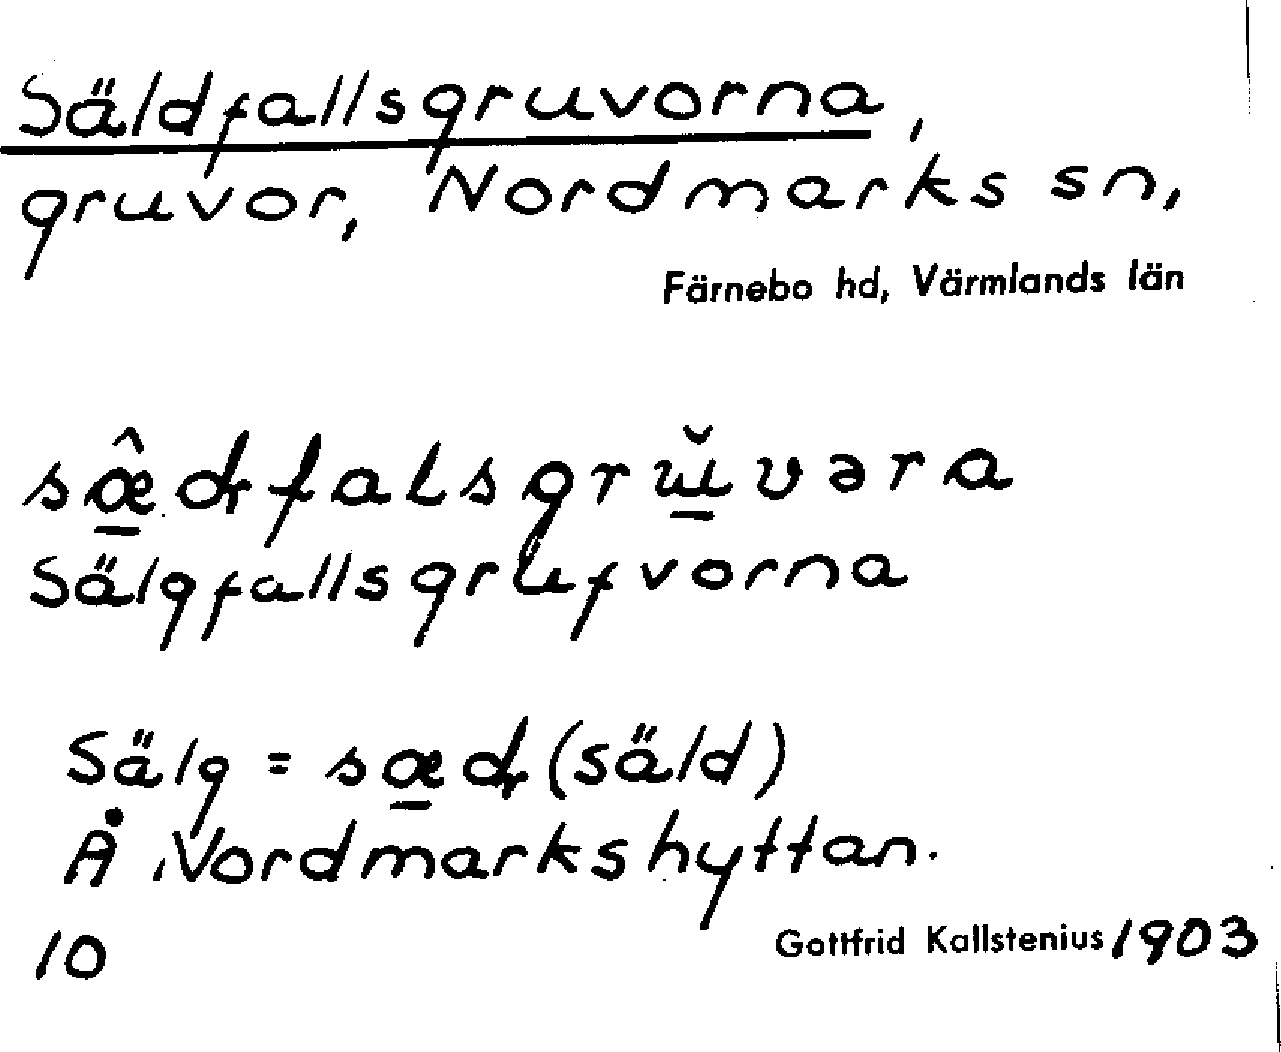 Säldfallsgruvorna,
gruvor, Nordmarks sn,
Färnebo hd, Värmlands län
Sälgfallsgrufvorna
Sälg = (säld)
Å Nordmarkshyttan.
10
Gottfrid Kallstenius 1903